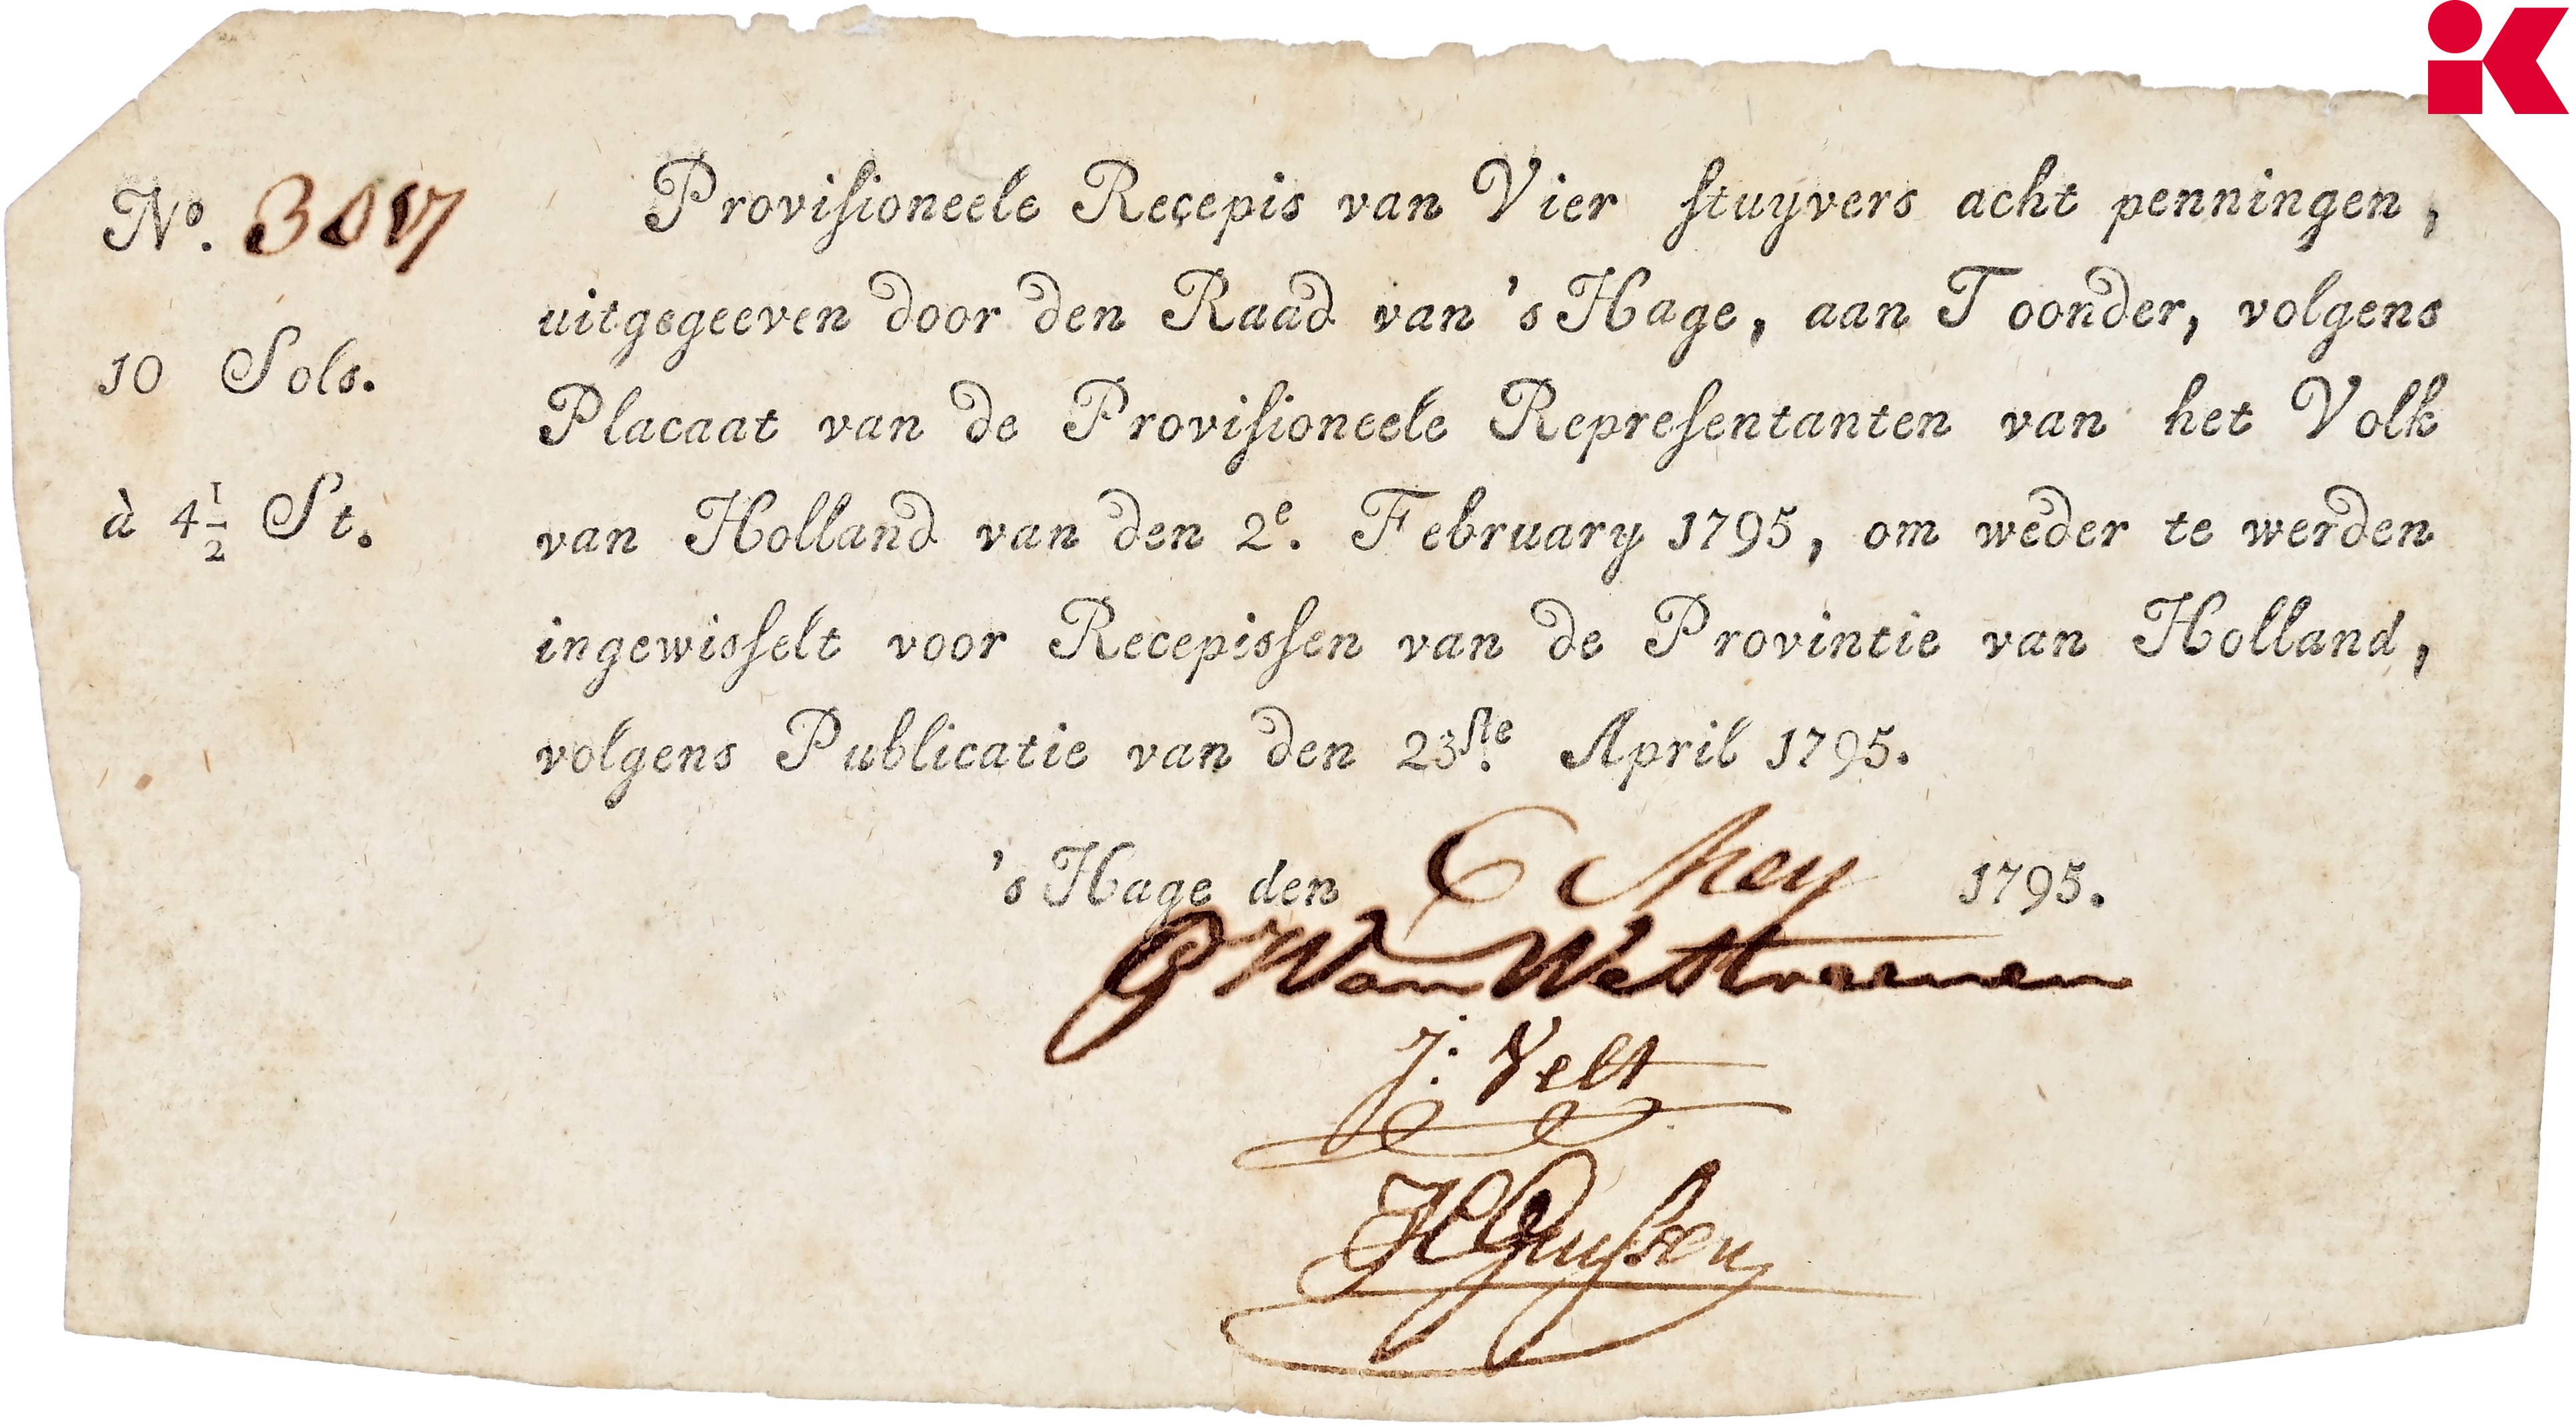 No. 3017
10 Sols.
à 4½ St.
Provisioneele Recepis van Vier stuyvers acht penningen,
uitgegeeven door den Raad van 's Hage, aan Toonder, volgens
Placaat van de Provisioneele Representanten van het Volk
van Holland van den 2e. February 1795, om weder te werden
ingewisselt voor Recepissen van de Provintie van Holland,
volgens Publicatie van den 23ste. April 1795.
's Hage den Mey 1795.
Van Westreenen
J: Velt